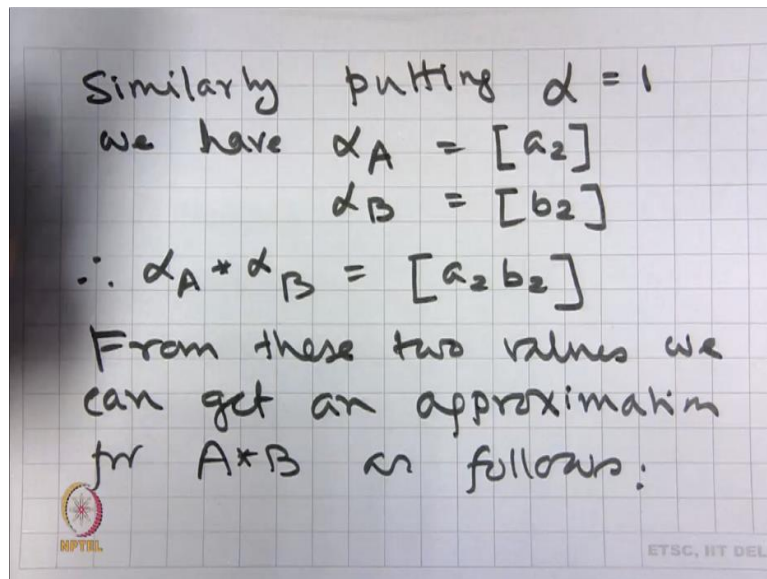 Similarly putting α = 1
we have α_A = [a₂]
α_B = [b₂]
∴ α_A * α_B = [a₂b₂]
From these two values we
can get an approximation
for A*B as follows:
NPTEL
ETSC, IIT DEL